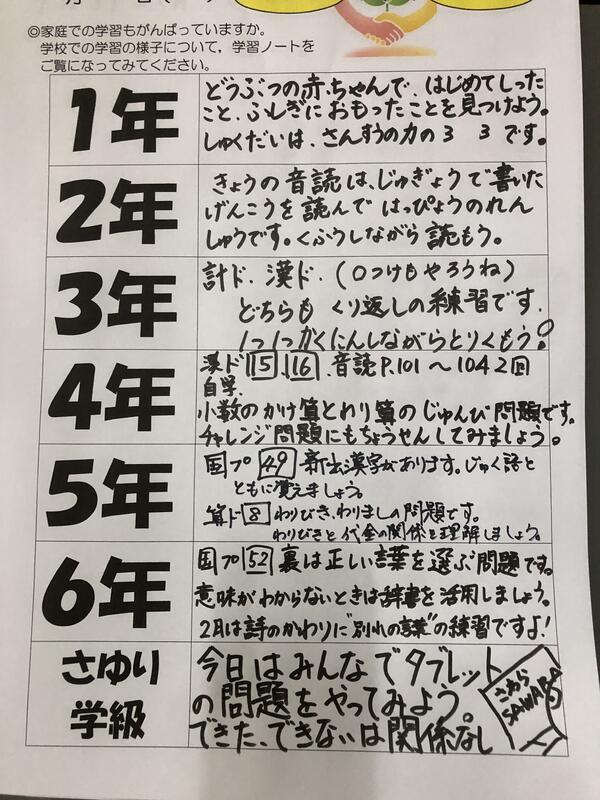 ◎家庭での学習もがんばっていますか。
学校での学習の様子について，学習ノートを
ご覧になってみてください。
1年
どうぶつの赤ちゃんで、はじめてしった
こと、ふしぎにおもったことを見つけよう。
しゅくだいは、さんすうの力の３３です。
2年
きょうの音読は、じゅぎょうで書いた
げんこうを読んではっぴょうのれん
しゅうです。くふうしながら読もう。
3年
計ド、漢ド、(○つけもやろうね)
どちらもくり返しの練習です。
1つ1つかくにんしながらとりくもう。
4年
漢ド15、16、音読P.101～104 2回
自学、
小数のかけ算とわり算のじゅんび問題です。
チャレンジ問題にもちょうせんしてみましょう。
5年
国プ49 新出漢字があります。じゅく語と
ともに覚えましょう。
算ド8 わりびき、わりましの問題です。
わりびきと代金の関係を理解しましょう。
6年
国プ52 裏は正しい言葉を選ぶ問題です。
意味がわからないときは辞書を活用しましょう。
2月は詩のかわりに"別れの言葉"の練習ですよ！
さゆり
学級
今日はみんなでタブレット
の問題をやってみよう。
できた、できないは関係なし
さわら
SAWARA